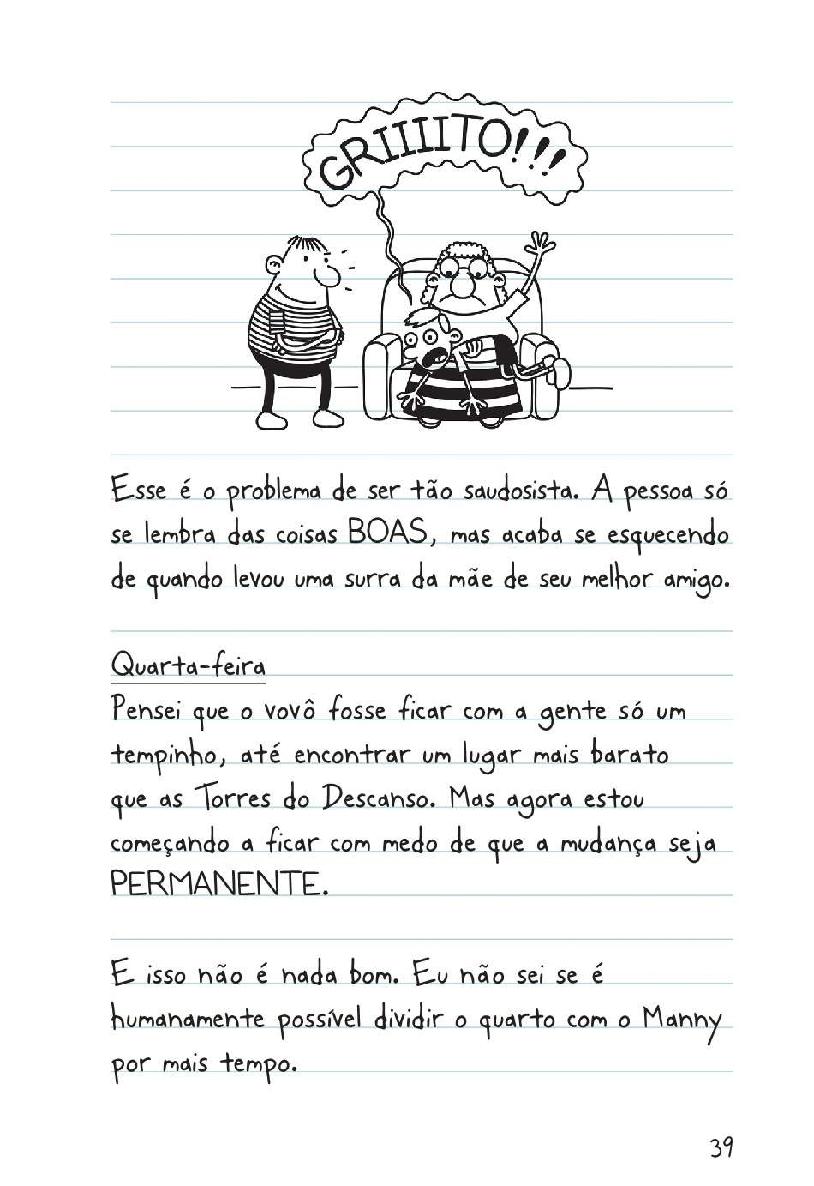 GRIIIIITO!!!
Esse é o problema de ser tão saudosista. A pessoa só
se lembra das coisas BOAS, mas acaba se esquecendo
de quando levou uma surra da mãe de seu melhor amigo.
Quarta-feira
Pensei que o vovô fosse ficar com a gente só um
tempinho, até encontrar um lugar mais barato
que as Torres do Descanso. Mas agora estou
começando a ficar com medo de que a mudança seja
PERMANENTE.
E isso não é nada bom. Eu não sei se é
humanamente possível dividir o quarto com o Manny
por mais tempo.
39